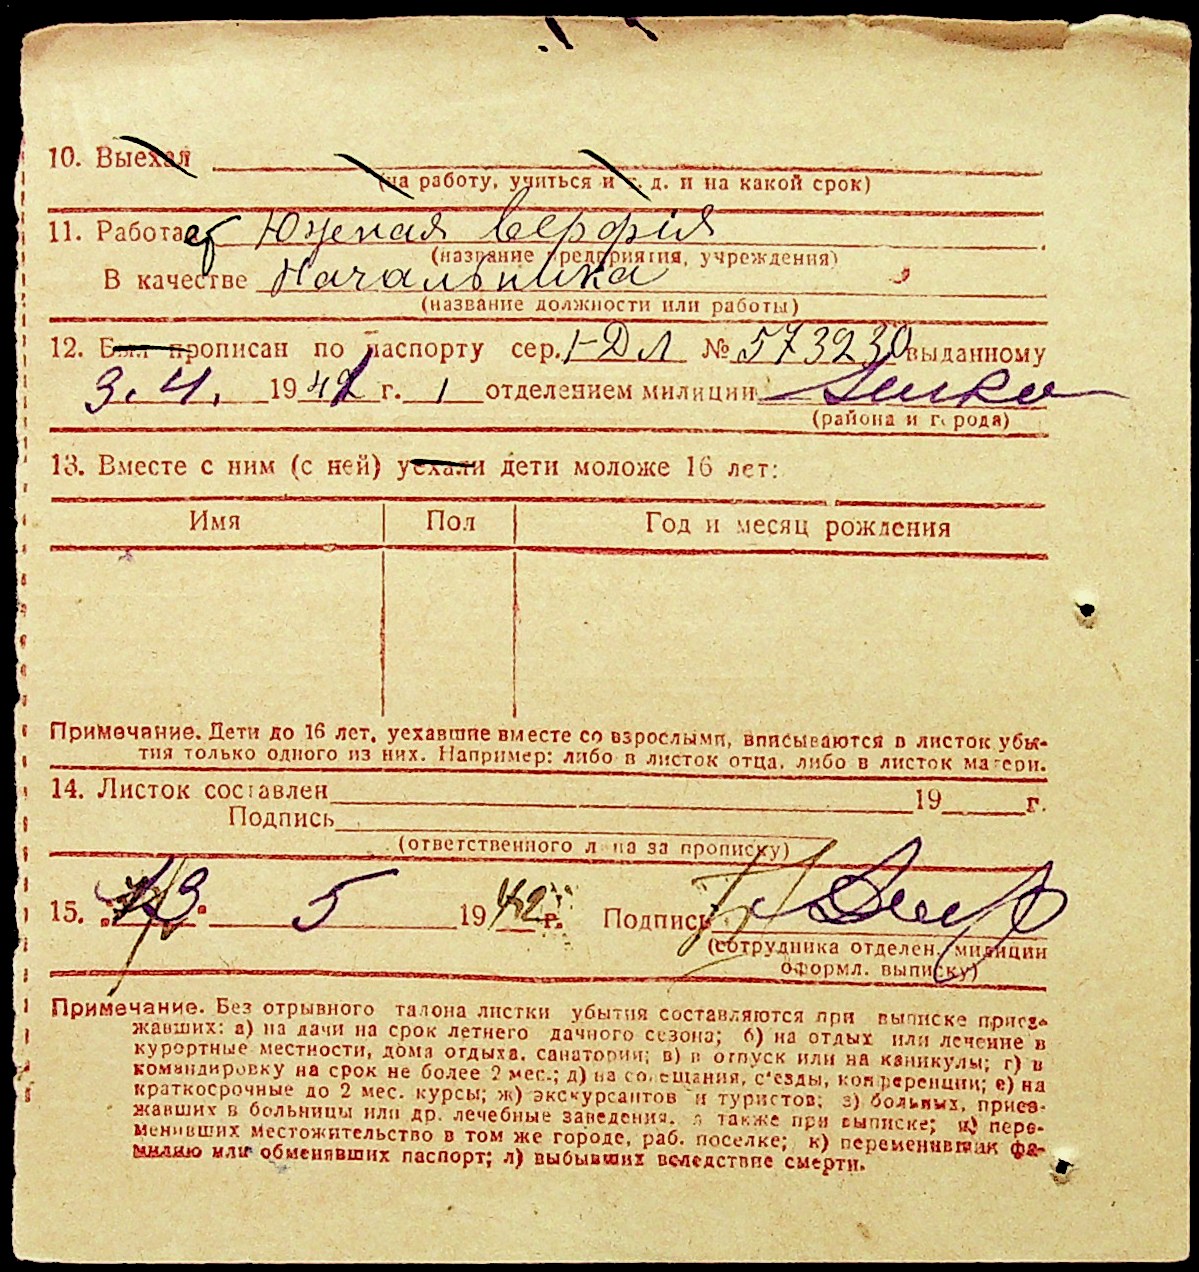 10. Выехал
(на работу, учиться и т. д. и на какой срок)
11. Работает Южная верфія
(название предприятия, учреждения)
В качестве Начальника
(название должности или работы)
12. Был прописан по паспорту сер. I-ДЛ № 573930 выданному
3. 4. 1942 г. 1 отделением милиции
(района и города)
13. Вместе с ним (с ней) уехали дети моложе 16 лет:
Имя Пол Год и месяц рождения
Примечание. Дети до 16 лет, уехавшие вместе со взрослыми, вписываются в листок убы-
тия только одного из них. Например: либо в листок отца, либо в листок матери.
14. Листок составлен 19 г.
Подпись
(ответственного лица за прописку)
15. „13“ 5 1942 г. Подпись
(сотрудника отделен. милиции
оформл. выписку)
Примечание. Без отрывного талона листки убытия составляются при выписке приез-
жавших: а) на дачи на срок летнего дачного сезона; б) на отдых или лечение в
курортные местности, дома отдыха, санатории; в) в отпуск или на каникулы; г) в
командировку на срок не более 2 мес.; д) на совещания, с'езды, конференции; е) на
краткосрочные до 2 мес. курсы; ж) экскурсантов и туристов; з) больных, приез-
жавших в больницы или др. лечебные заведения, а также при выписке; и) пере-
менивших местожительство в том же городе, раб. поселке; к) переменивших фа-
милию или обменявших паспорт; л) выбывших вследствие смерти.